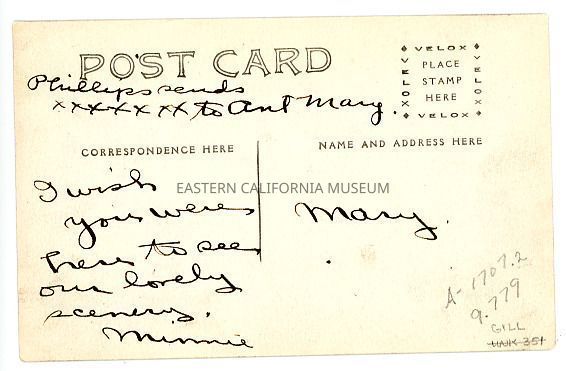 POST CARD
Phillips sends
xxxxxxx to Ant Mary.
VELOX
VELOX
PLACE
STAMP
HERE
VELOX
VELOX
CORRESPONDENCE HERE
NAME AND ADDRESS HERE
I wish
you were
here to see
our lovely
scenery.
Minnie
EASTERN CALIFORNIA MUSEUM
Mary.
A-1707.2
9.779
GILL
UNK 351